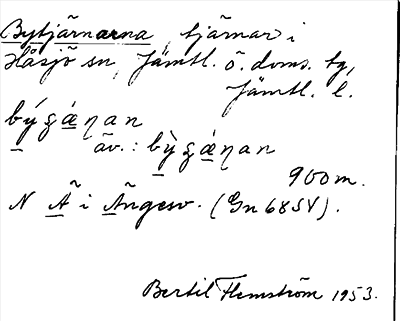 Bytjärnarna tjärnar i
Håsjö sn, Jämtl. ö. doms. tg,
Jämtl. l.
býgǽŋan
äv.: bỳgǽŋan
900 m.
N Å i Ängesv. (Gn 68 SV).
Bertil Flemström 1953.